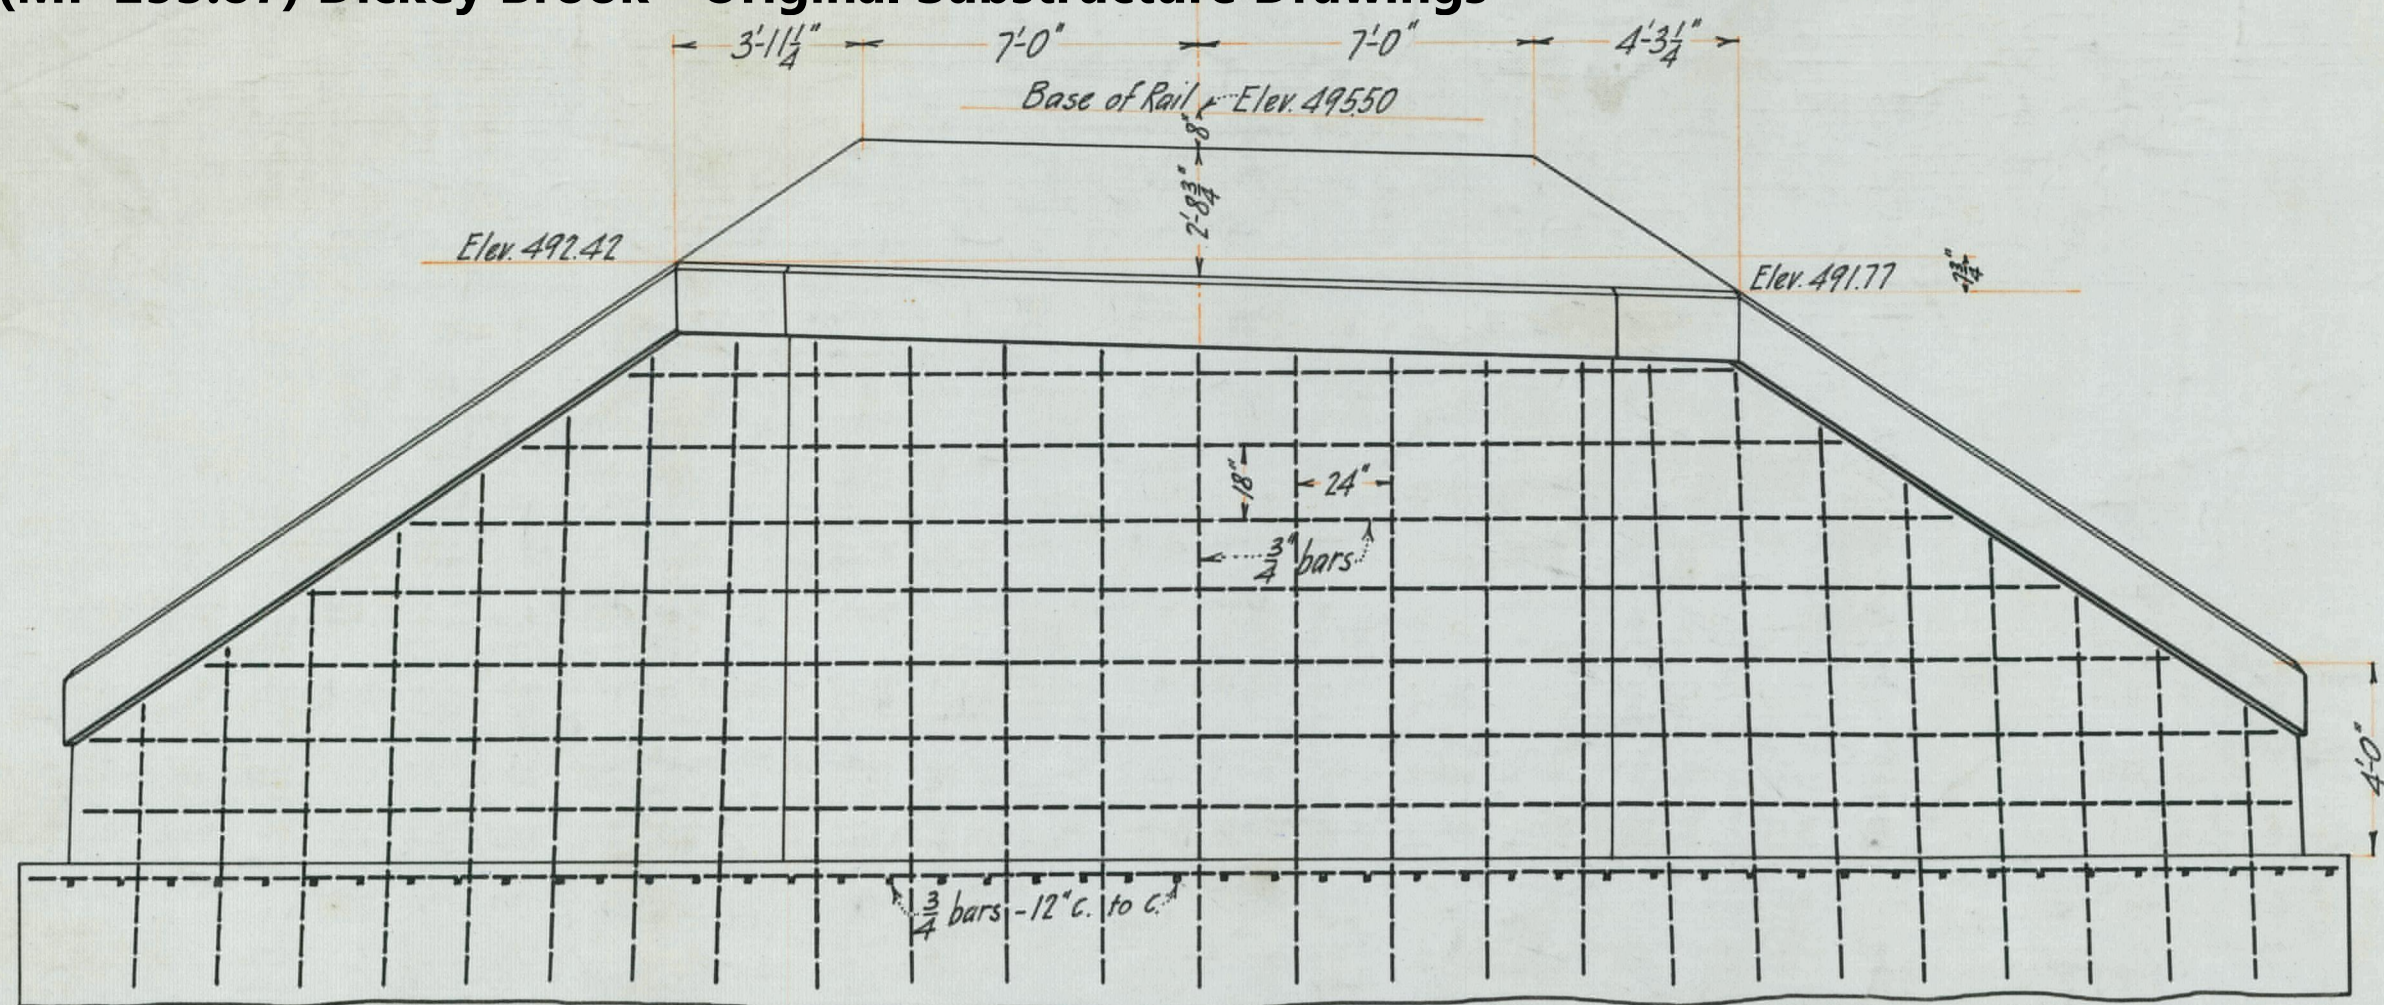 3'-11 1/4" 7'-0" 7'-0" 4'-3 1/4"
Base of Rail Elev. 495.50
8"
2'-8 3/4"
Elev. 492.42
Elev. 491.77
18"
24"
3/4" bars
4'-0"
3/4 bars - 12" c. to c.